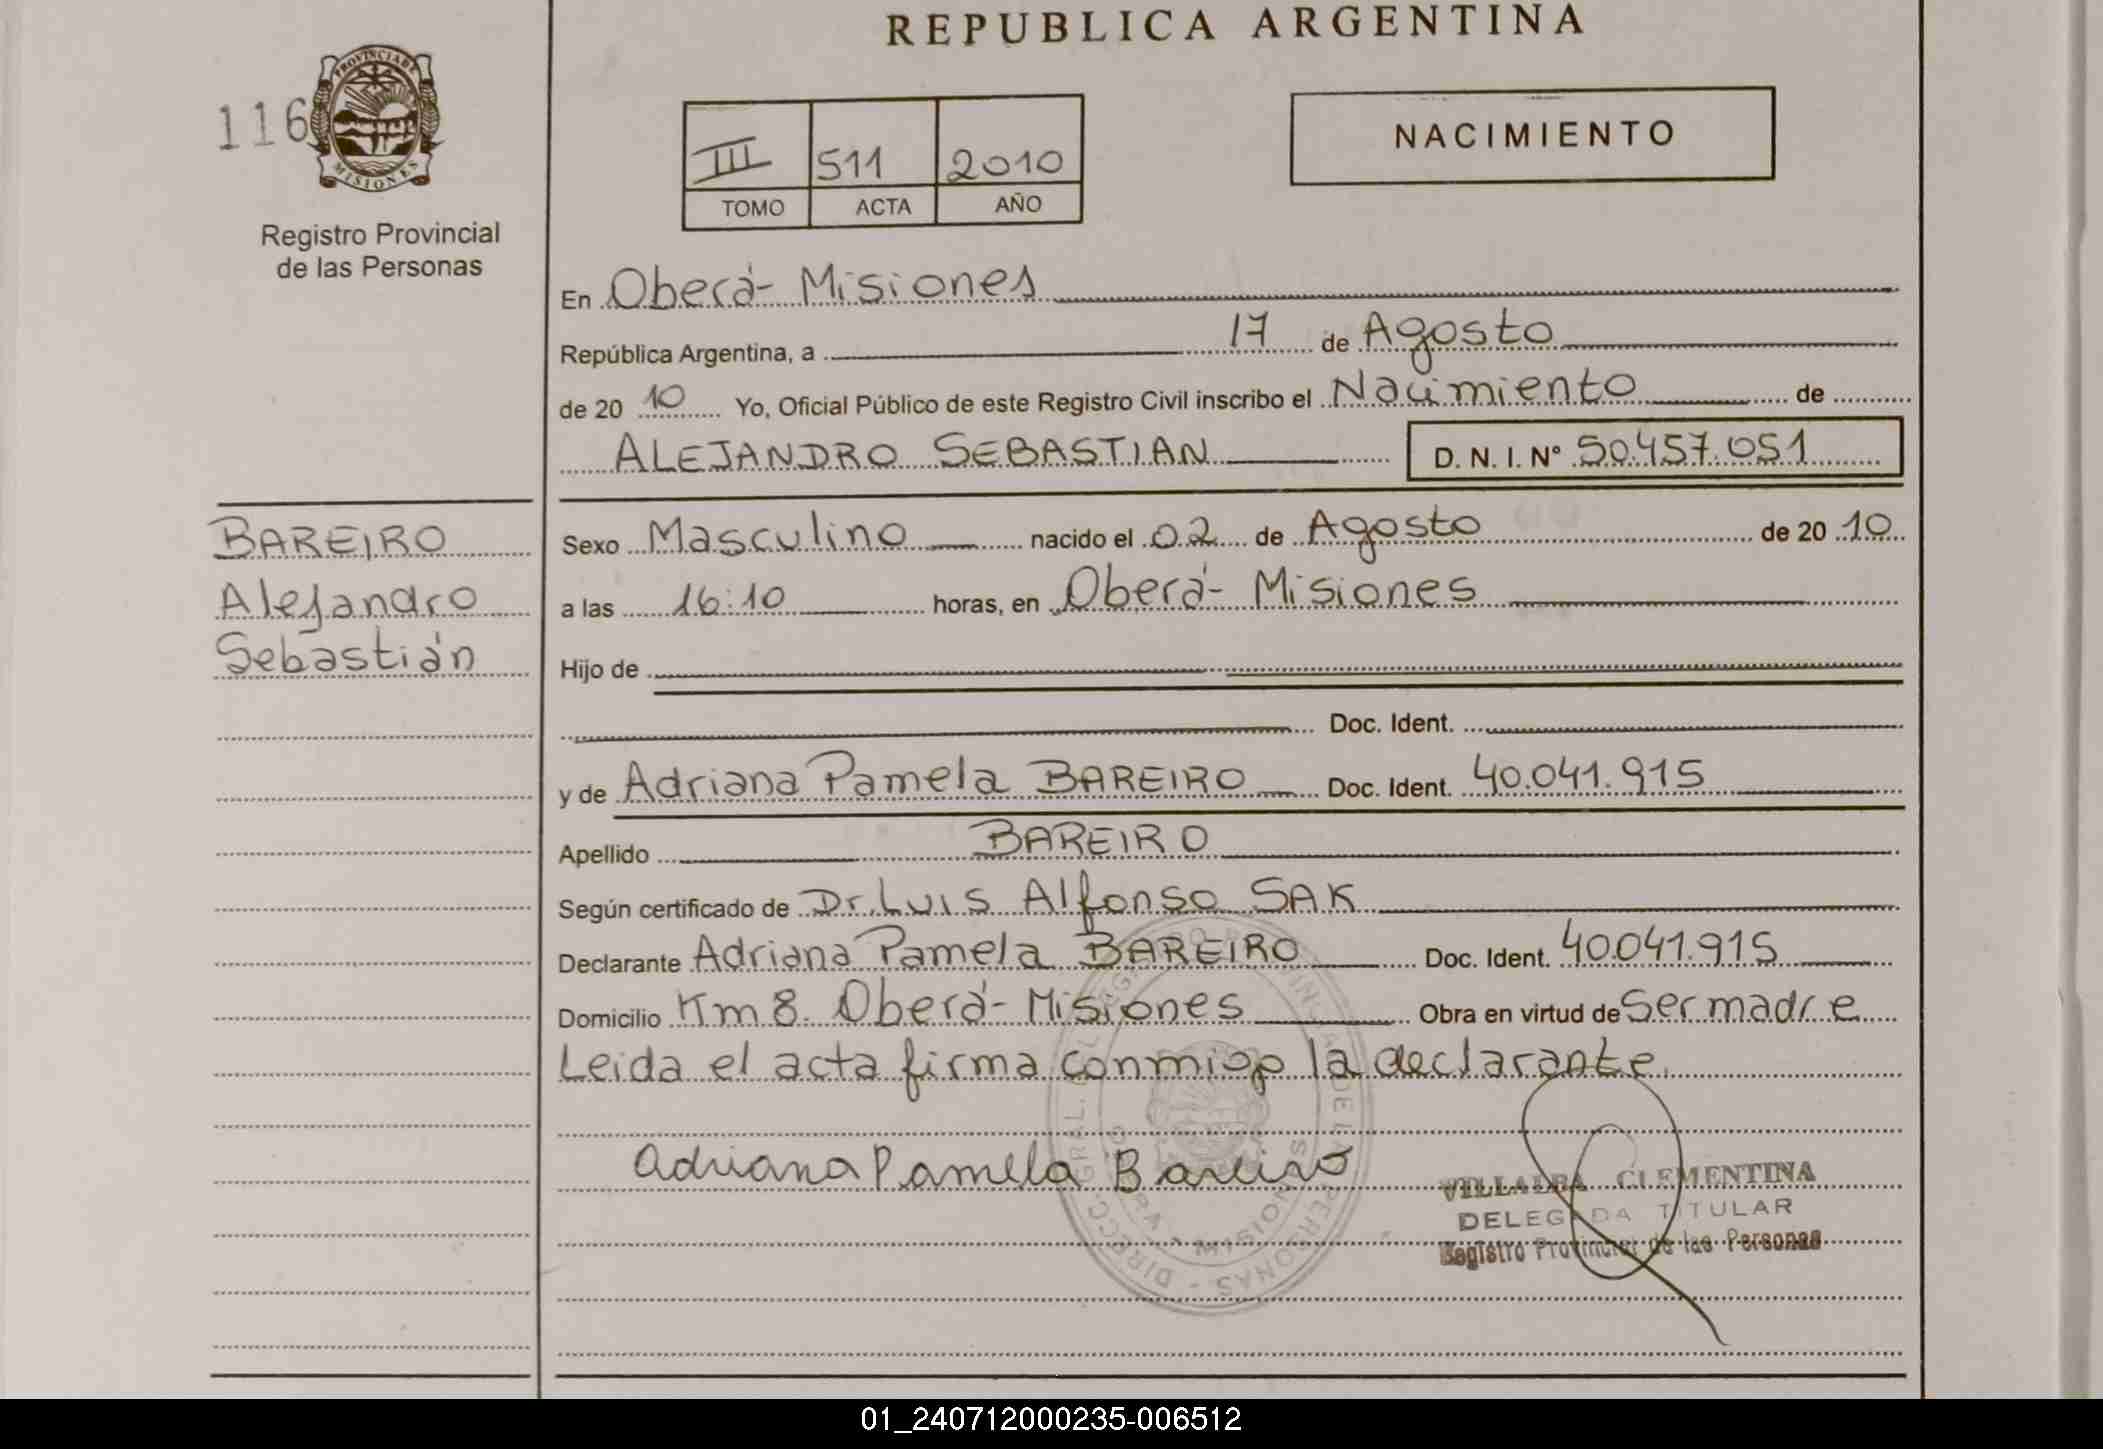 REPUBLICA ARGENTINA
116
PROVINCIA DE
MISIONES
Registro Provincial
de las Personas
III 511 2010
TOMO ACTA AÑO
NACIMIENTO
En Oberá- Misiones
República Argentina, a 17 de Agosto
de 20 10 Yo, Oficial Público de este Registro Civil inscribo el Nacimiento de
ALEJANDRO SEBASTIAN D. N. I. N° 50.457.051
BAREIRO
Alejandro
Sebastián
Sexo Masculino nacido el 02 de Agosto de 20 10
a las 16:10 horas, en Oberá- Misiones
Hijo de
Doc. Ident.
y de Adriana Pamela BAREIRO Doc. Ident. 40.041.915
Apellido BAREIRO
Según certificado de Dr. Luis Alfonso SAK
Declarante Adriana Pamela BAREIRO Doc. Ident. 40.041.915
Domicilio Km 8. Oberá- Misiones Obra en virtud de Ser madre
Leida el acta firma conmigo la declarante.
Adriana Pamela Bareiro
VILLALBA CLEMENTINA
DELEGADA TITULAR
Registro Provincial de las Personas
01_240712000235-006512